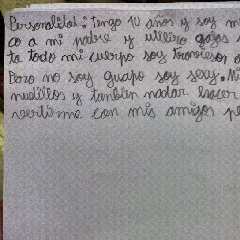 Personalidad: tengo 10 años y soy m
co a mi padre y utilizo gafas
ta todo mi cuerpo soy travieso
Pero no soy guapo soy sexy. Mi
nudillos y también nadar. hacer
vertirme con mis amigos pe